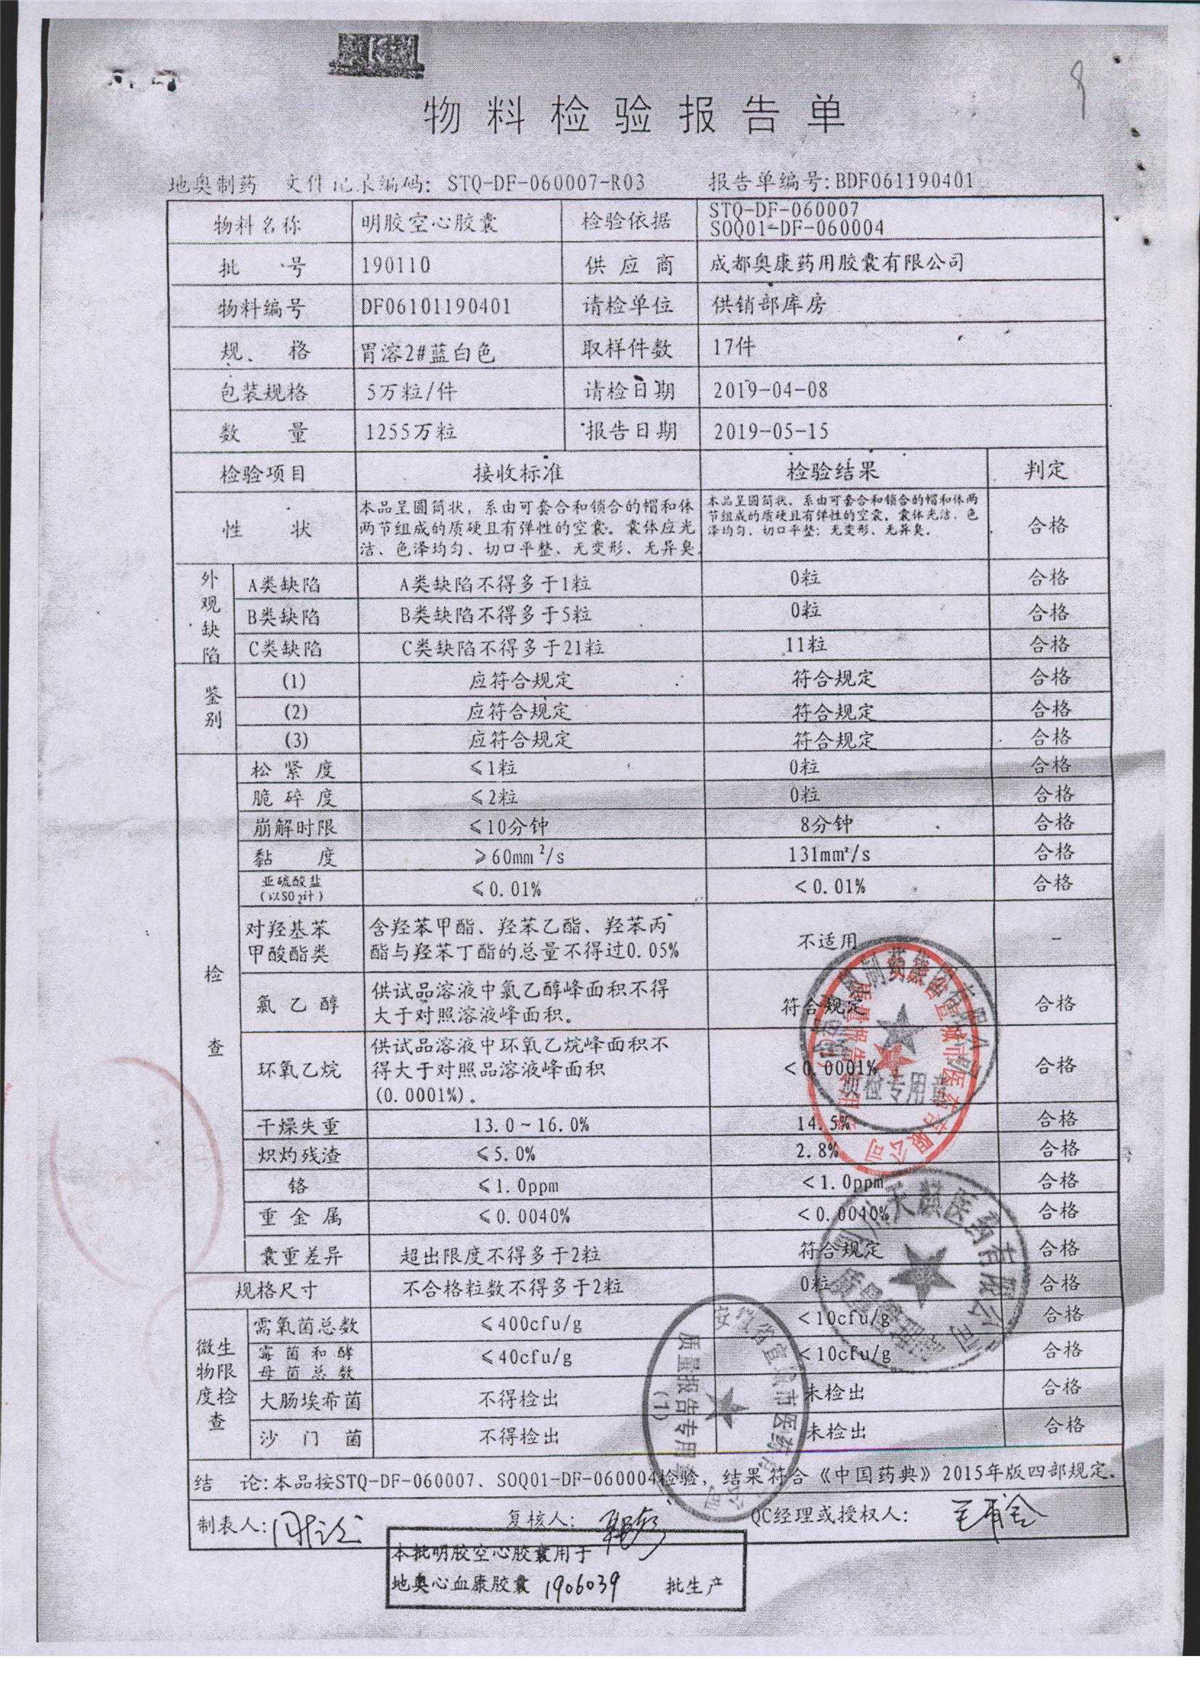 物料检验报告单
地奥制药 文件记录编码: STQ-DF-060007-R03 报告单编号:BDF061190401
物料名称 明胶空心胶囊 检验依据 STQ-DF-060007
SOQ01-DF-060004
批 号 190110 供应商 成都奥康药用胶囊有限公司
物料编号 DF06101190401 请检单位 供销部库房
规 格 胃溶2#蓝白色 取样件数 17件
包装规格 5万粒/件 请检日期 2019-04-08
数 量 1255万粒 报告日期 2019-05-15
检验项目 接收标准 检验结果 判定
性 状 本品呈圆筒状，系由可套合和锁合的帽和体两节组成的质硬且有弹性的空囊。囊体应光洁、色泽均匀、切口平整、无变形、无异臭 本品呈圆筒状，系由可套合和锁合的帽和体两节组成的质硬且有弹性的空囊。囊体光洁、色泽均匀、切口平整、无变形、无异臭。 合格
外观缺陷
A类缺陷 A类缺陷不得多于1粒 0粒 合格
B类缺陷 B类缺陷不得多于5粒 0粒 合格
C类缺陷 C类缺陷不得多于21粒 11粒 合格
鉴别
(1) 应符合规定 符合规定 合格
(2) 应符合规定 符合规定 合格
(3) 应符合规定 符合规定 合格
检查
松紧度 ≤1粒 0粒 合格
脆碎度 ≤2粒 0粒 合格
崩解时限 ≤10分钟 8分钟 合格
黏 度 ≥60mm²/s 131mm²/s 合格
亚硫酸盐(以SO2计) ≤0.01% <0.01% 合格
对羟基苯甲酸酯类 含羟苯甲酯、羟苯乙酯、羟苯丙酯与羟苯丁酯的总量不得过0.05% 不适用 -
氯乙醇 供试品溶液中氯乙醇峰面积不得大于对照溶液峰面积。 符合规定 合格
环氧乙烷 供试品溶液中环氧乙烷峰面积不得大于对照品溶液峰面积(0.0001%)。 <0.0001% 合格
干燥失重 13.0~16.0% 14.5% 合格
炽灼残渣 ≤5.0% 2.8% 合格
铬 ≤1.0ppm <1.0ppm 合格
重金属 ≤0.0040% <0.0040% 合格
囊重差异 超出限度不得多于2粒 符合规定 合格
规格尺寸 不合格粒数不得多于2粒 0粒 合格
微生物限度检查
需氧菌总数 ≤400cfu/g <10cfu/g 合格
霉菌和酵母菌总数 ≤40cfu/g <10cfu/g 合格
大肠埃希菌 不得检出 未检出 合格
沙门菌 不得检出 未检出 合格
结 论:本品按STQ-DF-060007、SOQ01-DF-060004检验，结果符合《中国药典》2015年版四部规定.
制表人: 复核人: QC经理或授权人:
本批明胶空心胶囊用于
地奥心血康胶囊 1906039 批生产
质检专用章
安徽省宣城市医药有限公司
质量报告专用章
(1)
天麒医药有限公司